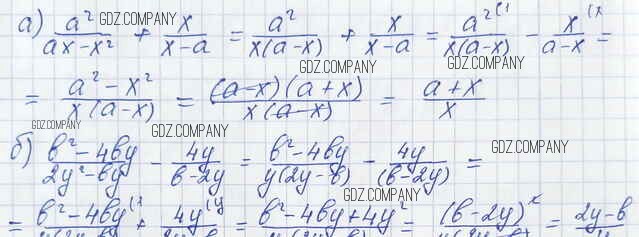 а) a²/(ax-x²) + x/(x-a) = a²/(x(a-x)) + x/(x-a) = a²⁽¹/(x(a-x)) - x⁽ˣ/(a-x) =
= (a²-x²)/(x(a-x)) = ((a-x)(a+x))/(x(a-x)) = (a+x)/x
б) (b²-4by)/(2y²-by) - 4y/(b-2y) = (b²-4by)/(y(2y-b)) - 4y/(b-2y) =
= b²-4by⁽¹ + 4y⁽ʸ = b²-4by+4y² = (b-2y)² = 2y-b
GDZ.COMPANY
GDZ.COMPANY
GDZ.COMPANY
GDZ.COMPANY
GDZ.COMPANY
GDZ.COMPANY
GDZ.COMPANY